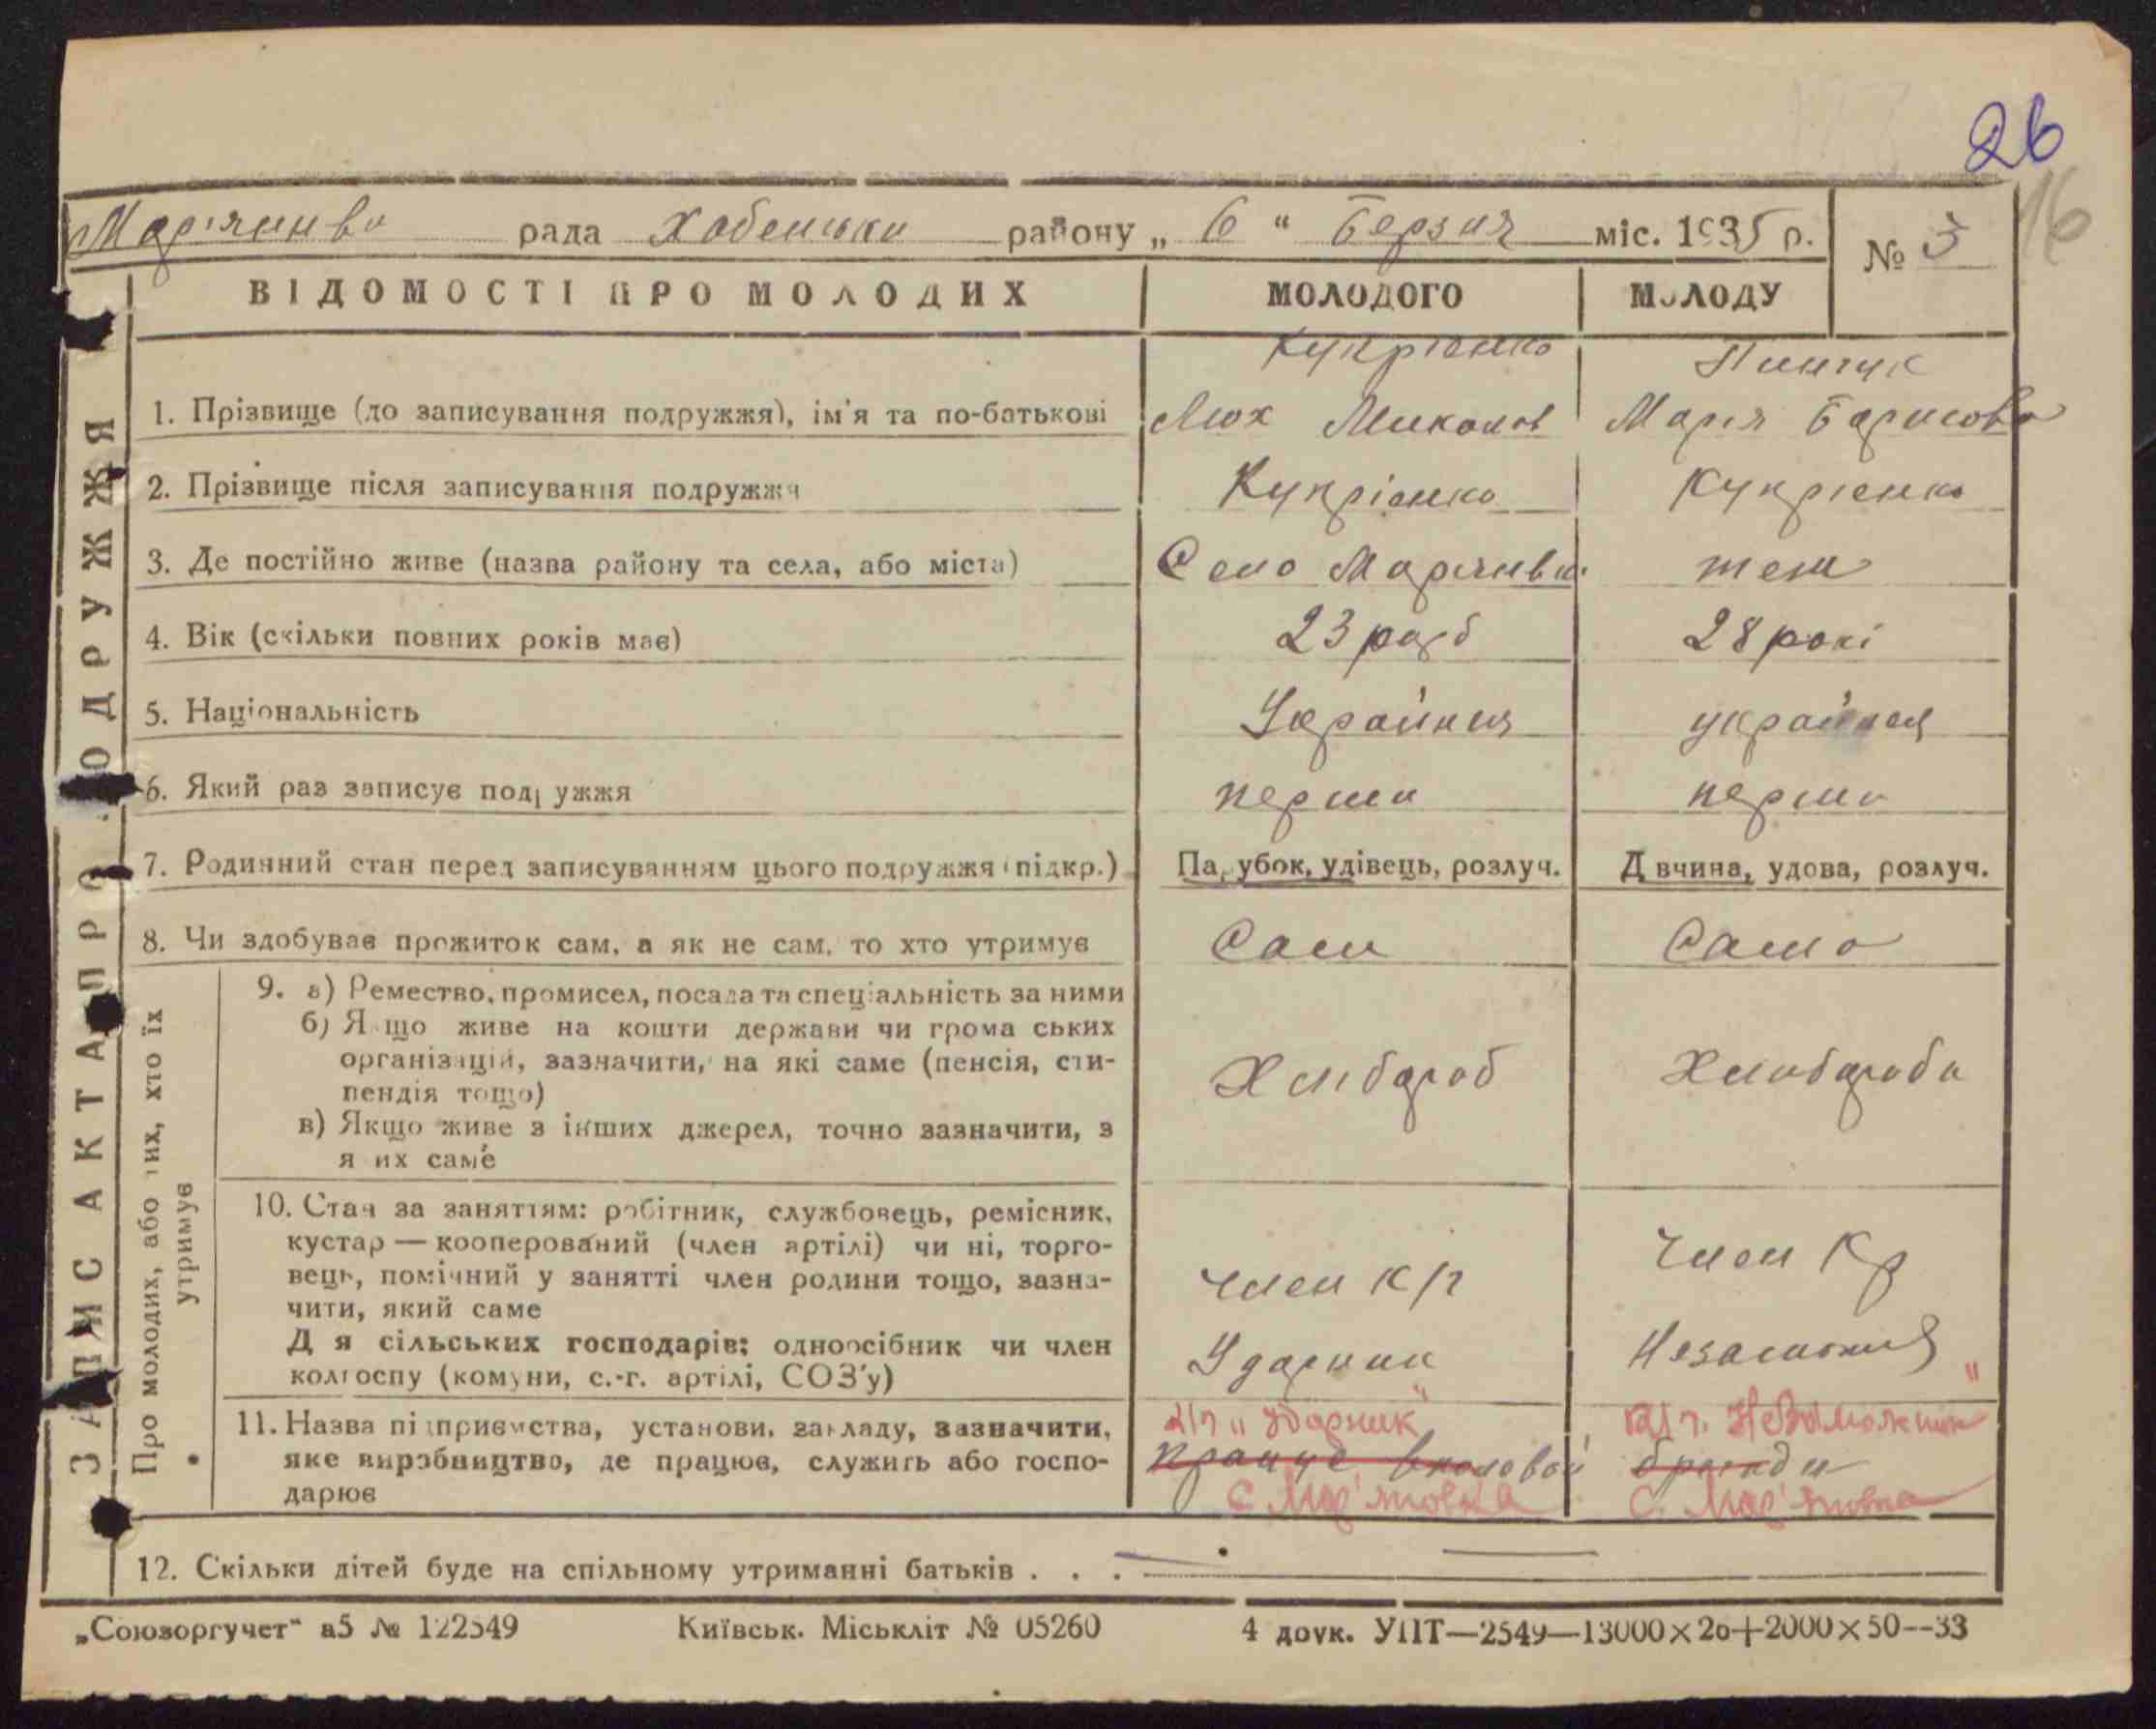 26
16
Мар'янивка рада Хабенська району „ 6 “ Березня міс. 1935 р. № 3
ВІДОМОСТІ ПРО МОЛОДИХ МОЛОДОГО МОЛОДУ
ЗАПИС АКТА ПРО ПОДРУЖЖЯ
Купрієнко Пинчук
1. Прізвище (до записування подружжя), ім'я та по-батькові Миколов Марія Барисова
2. Прізвище після записування подружжя Купрієнко Купрієнко
3. Де постійно живе (назва району та села, або міста) Село теж
4. Вік (скільки повних років має) 23 28 рокі
5. Національність
6. Який раз записує подружжя перши перши
7. Родинний стан перед записуванням цього подружжя (підкр.) Парубок, удівець, розлуч. Дівчина, удова, розлуч.
8. Чи здобуває прожиток сам, а як не сам, то хто утримує Сам Сама
Про молодих, або тих, хто їх утримує
9. а) Ремество, промисел, посада та спеціальність за ними
б) Якщо живе на кошти держави чи громадських
організацій, зазначити, на які саме (пенсія, сти-
пендія тощо)
Хлібороб Хлиборобка
в) Якщо живе з інших джерел, точно зазначити, з
яких саме
10. Стан за заняттям: робітник, службовець, ремісник,
кустар — кооперований (член артілі) чи ні, торго-
вець, помічний у занятті член родини тощо, зазна-
чити, який саме
член к/г Член Кг
Для сільських господарів: одноосібник чи член
колгоспу (комуни, с.-г. артілі, СОЗ'у)
Ударник
11. Назва підприємства, установи, закладу, зазначити,
яке виробництво, де працює, служить або госпо-
дарює
к/г „Ударник“ к/г. Незаможник“
працює
с. Мар'яновка с. Мар'яновка
12. Скільки дітей буде на спільному утриманні батьків . . .
„Союзоргучет“ а5 № 122549 Київськ. Міськліт № 05260 4 друк. УПТ—2549—13000×20+2000×50--33